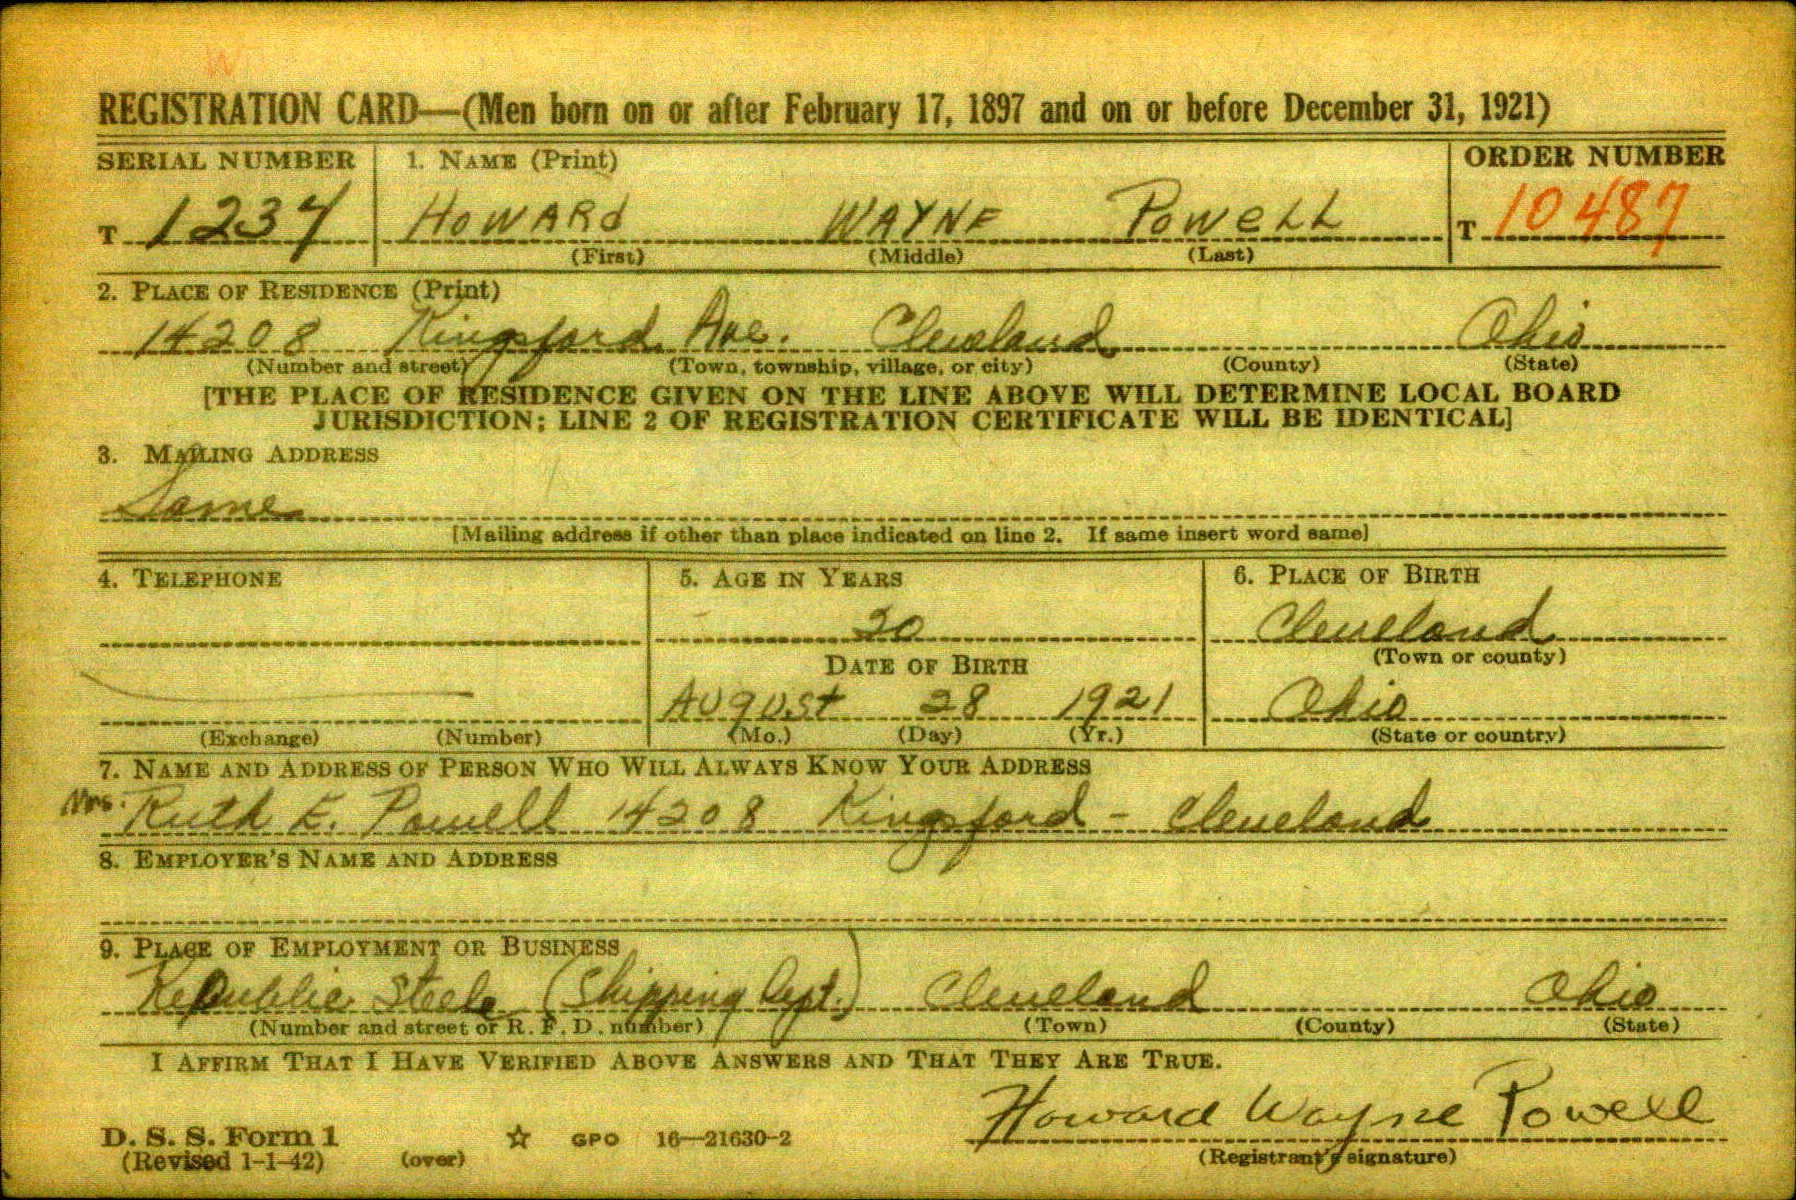 REGISTRATION CARD—(Men born on or after February 17, 1897 and on or before December 31, 1921)
SERIAL NUMBER 1. NAME (Print) ORDER NUMBER
T 1237 HOWARD WAYNE POWELL T 10487
(First) (Middle) (Last)
2. PLACE OF RESIDENCE (Print)
14208 Kingsford Ave. Cleveland Ohio
(Number and street) (Town, township, village, or city) (County) (State)
[THE PLACE OF RESIDENCE GIVEN ON THE LINE ABOVE WILL DETERMINE LOCAL BOARD
JURISDICTION; LINE 2 OF REGISTRATION CERTIFICATE WILL BE IDENTICAL]
3. MAILING ADDRESS
Same
[Mailing address if other than place indicated on line 2. If same insert word same]
4. TELEPHONE 5. AGE IN YEARS 6. PLACE OF BIRTH
20 Cleveland
DATE OF BIRTH (Town or county)
August 28 1921 Ohio
(Exchange) (Number) (Mo.) (Day) (Yr.) (State or country)
7. NAME AND ADDRESS OF PERSON WHO WILL ALWAYS KNOW YOUR ADDRESS
Mrs. Ruth E. Powell 14208 Kingsford - Cleveland
8. EMPLOYER'S NAME AND ADDRESS
9. PLACE OF EMPLOYMENT OR BUSINESS
Republic Steele (Shipping Dept.) Cleveland Ohio
(Number and street or R. F. D. number) (Town) (County) (State)
I AFFIRM THAT I HAVE VERIFIED ABOVE ANSWERS AND THAT THEY ARE TRUE.
Howard Wayne Powell
D. S. S. Form 1 ☆ GPO 16—21630-2
(Revised 1-1-42) (over) (Registrant's signature)